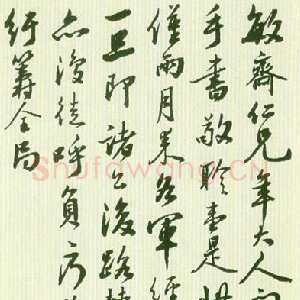 敏齋仁兄年大人閣
手書敬聆壹是
僅兩月果各軍經
一旦即諸公後路
亦復徒呼負
紆籌全局
Shufawang.CN